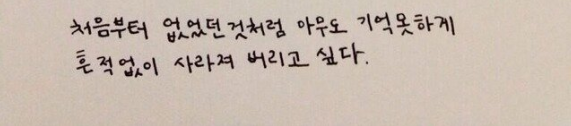 처음부터 없었던것처럼 아무도 기억못하게
흔적없이 사라져 버리고 싶다.